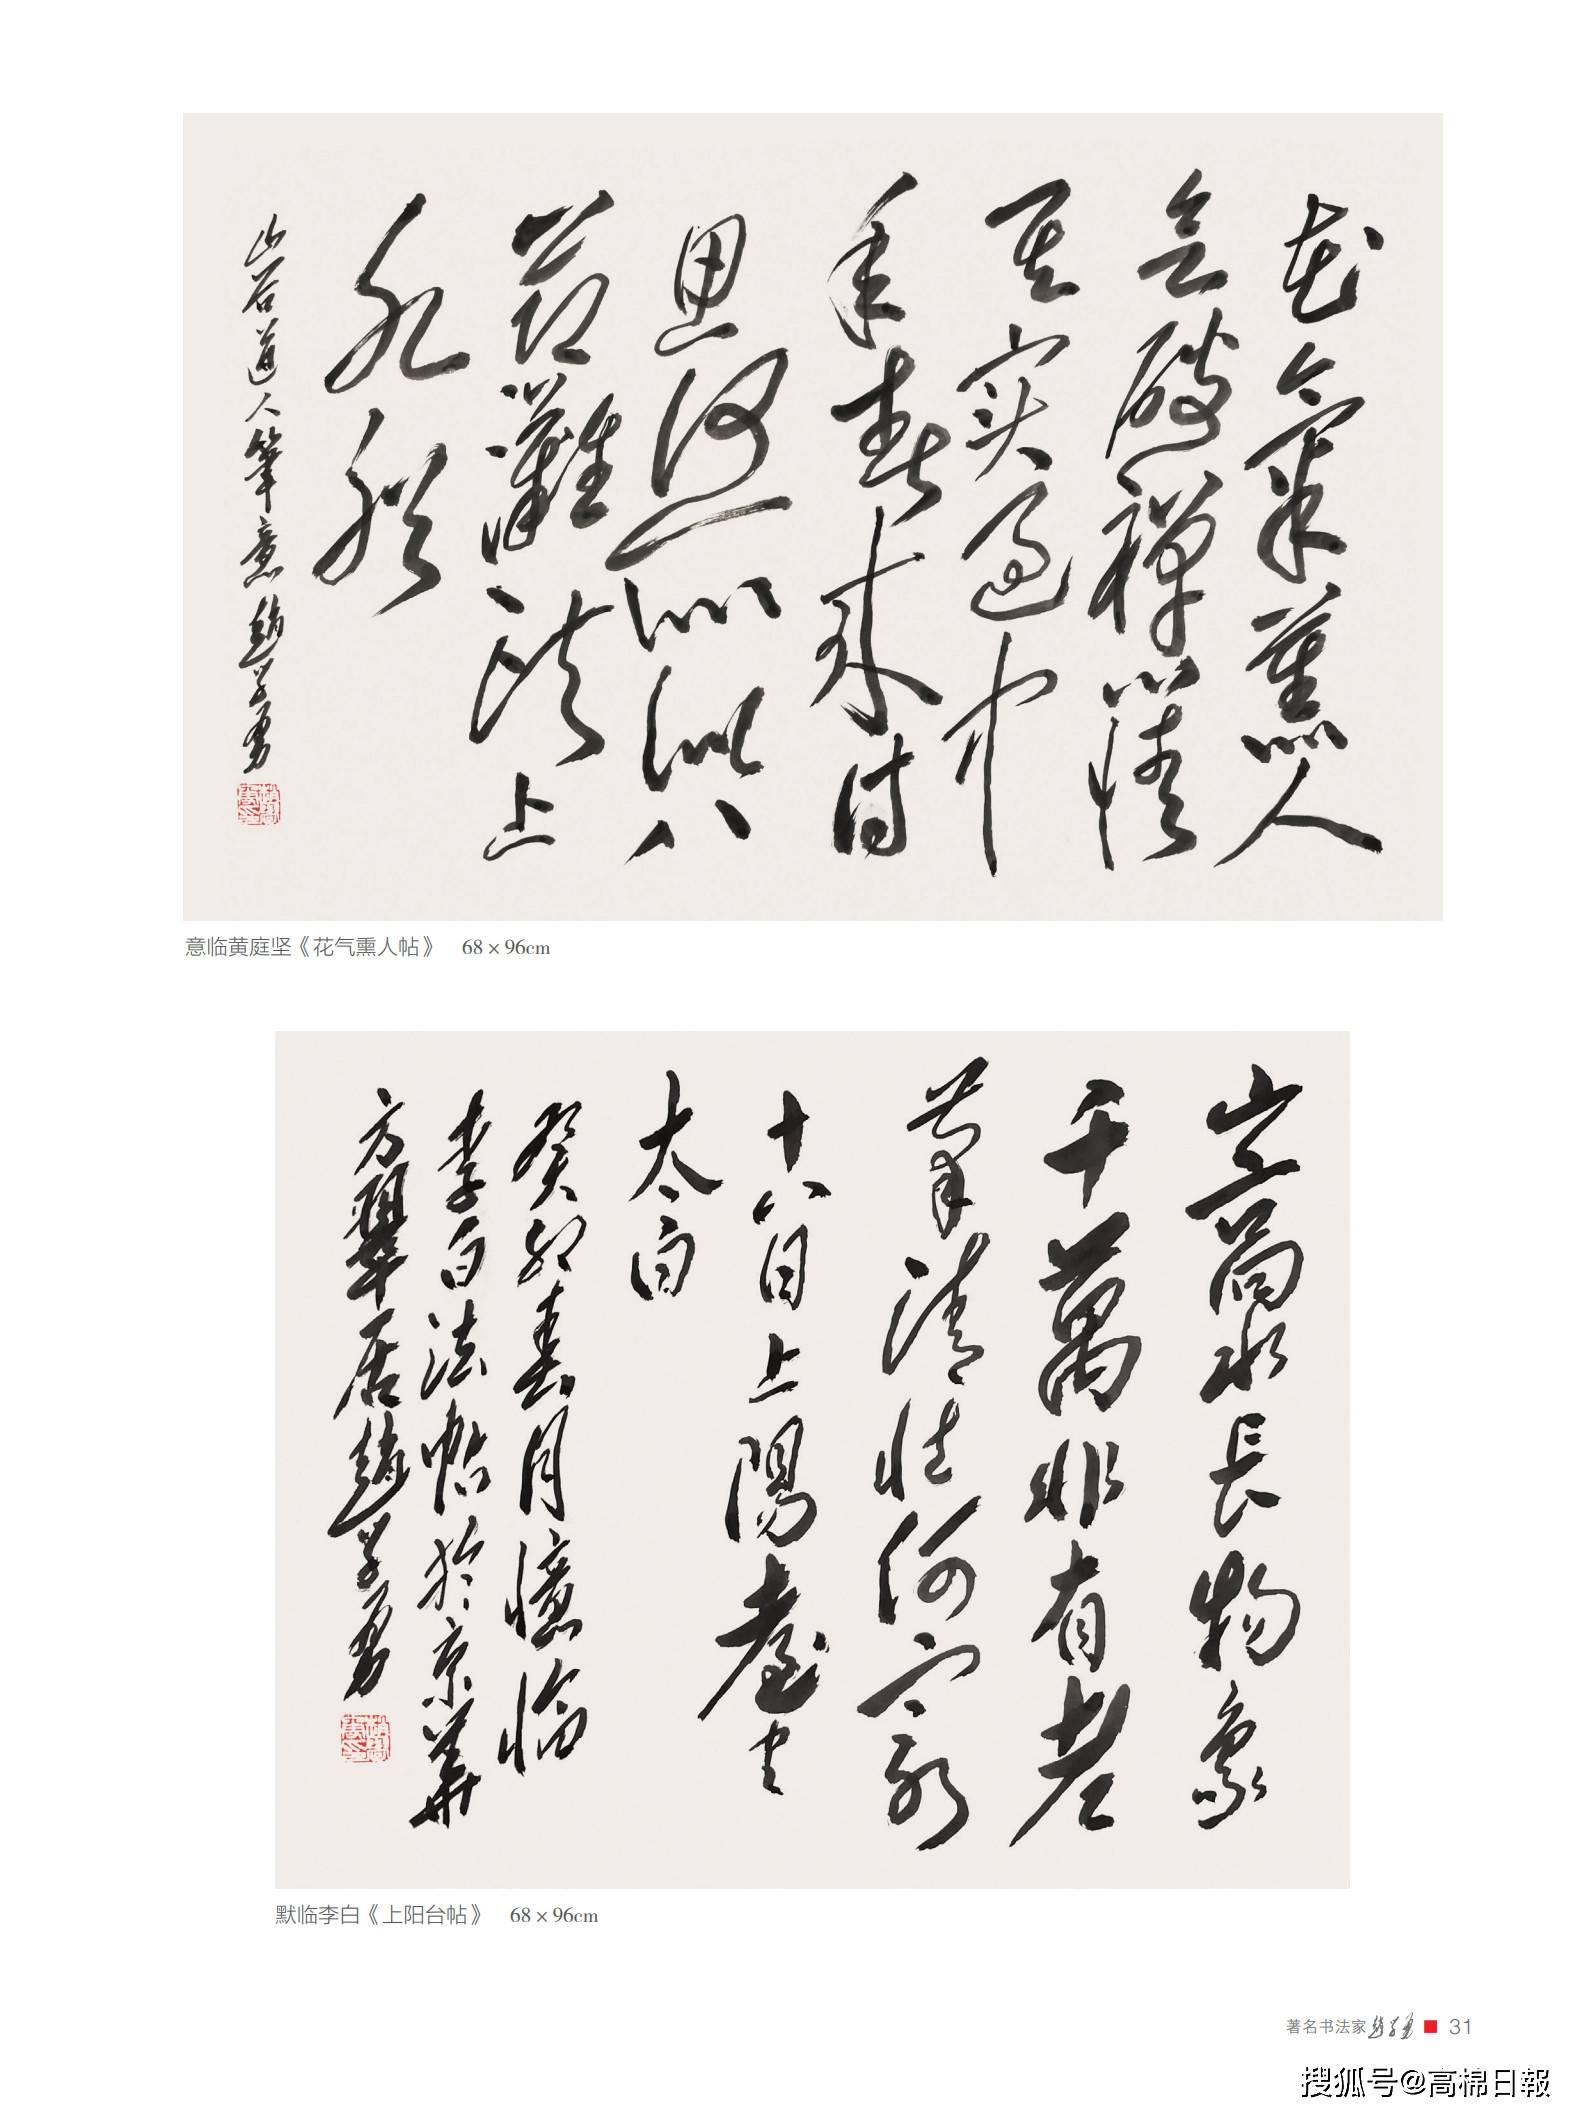 花氣薰人
欲破禪心情
其实過中
年春來诗
思何所似八
節灘頭上
水船
山谷道人筆意趙学勇
意临黄庭坚《花气熏人帖》 68×96cm
山高水長物象
千萬非有老
筆清壯何窮
十八日上陽臺書
太白
癸卯春月憶臨
李白法帖於京華
方翠居趙学勇
默临李白《上阳台帖》 68×96cm
著名书法家趙学勇 31
搜狐号@高棉日報